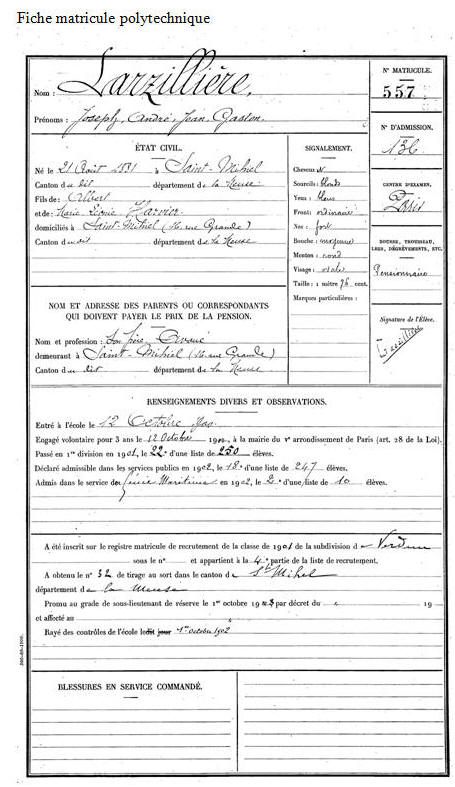 Fiche matricule polytechnique
Nom : Larzillière.
Prénoms : Joseph, André, Jean, Gaston.
N° MATRICULE.
557
N° D'ADMISSION.
136
CENTRE D'EXAMEN.
Paris
BOURSE, TROUSSEAU,
LIER, DÉGRÈVEMENTS, ETC.
Pensionnaire
Signature de l'Élève.
Larzillière
ÉTAT CIVIL.
Né le 21 Août à Saint-Mihiel
Canton du dit département de la Meuse
Fils de : Albert
et de : Marie
domiciliés à Saint-Mihiel (16 rue Grande)
Canton du dit département de la Meuse
SIGNALEMENT.
Cheveux
Sourcils : blonds
Yeux : bleus
Front : ordinaire
Nez : fort
Bouche : moyenne
Menton : rond
Visage : ovale
Taille : 1 mètre 76 cent.
Marques particulières :
NOM ET ADRESSE DES PARENTS OU CORRESPONDANTS
QUI DOIVENT PAYER LE PRIX DE LA PENSION.
Nom et profession : Son père Avoué
demeurant à Saint-Mihiel (16 rue Grande)
Canton du dit département de la Meuse
RENSEIGNEMENTS DIVERS ET OBSERVATIONS.
Entré à l'école le 12 Octobre 1900
Engagé volontaire pour 3 ans le 12 Octobre 1900, à la mairie du Ve arrondissement de Paris (art. 28 de la Loi).
Passé en 1re division en 1901, le 22e d'une liste de 250 élèves.
Déclaré admissible dans les services publics en 1902, le 18e d'une liste de 247 élèves.
Admis dans le service des Génie Maritime en 1902, le 2e d'une liste de 10 élèves.
A été inscrit sur le registre matricule de recrutement de la classe de 1901 de la subdivision de Verdun
sous le n° et appartient à la 4e partie de la liste de recrutement.
A obtenu le n° 32 de tirage au sort dans le canton de St Mihiel
département de la Meuse
Promu au grade de sous-lieutenant de réserve le 1er octobre 1903 par décret du 19
et affecté au
Rayé des contrôles de l'école ledit jour 1er octobre 1902
BLESSURES EN SERVICE COMMANDÉ.